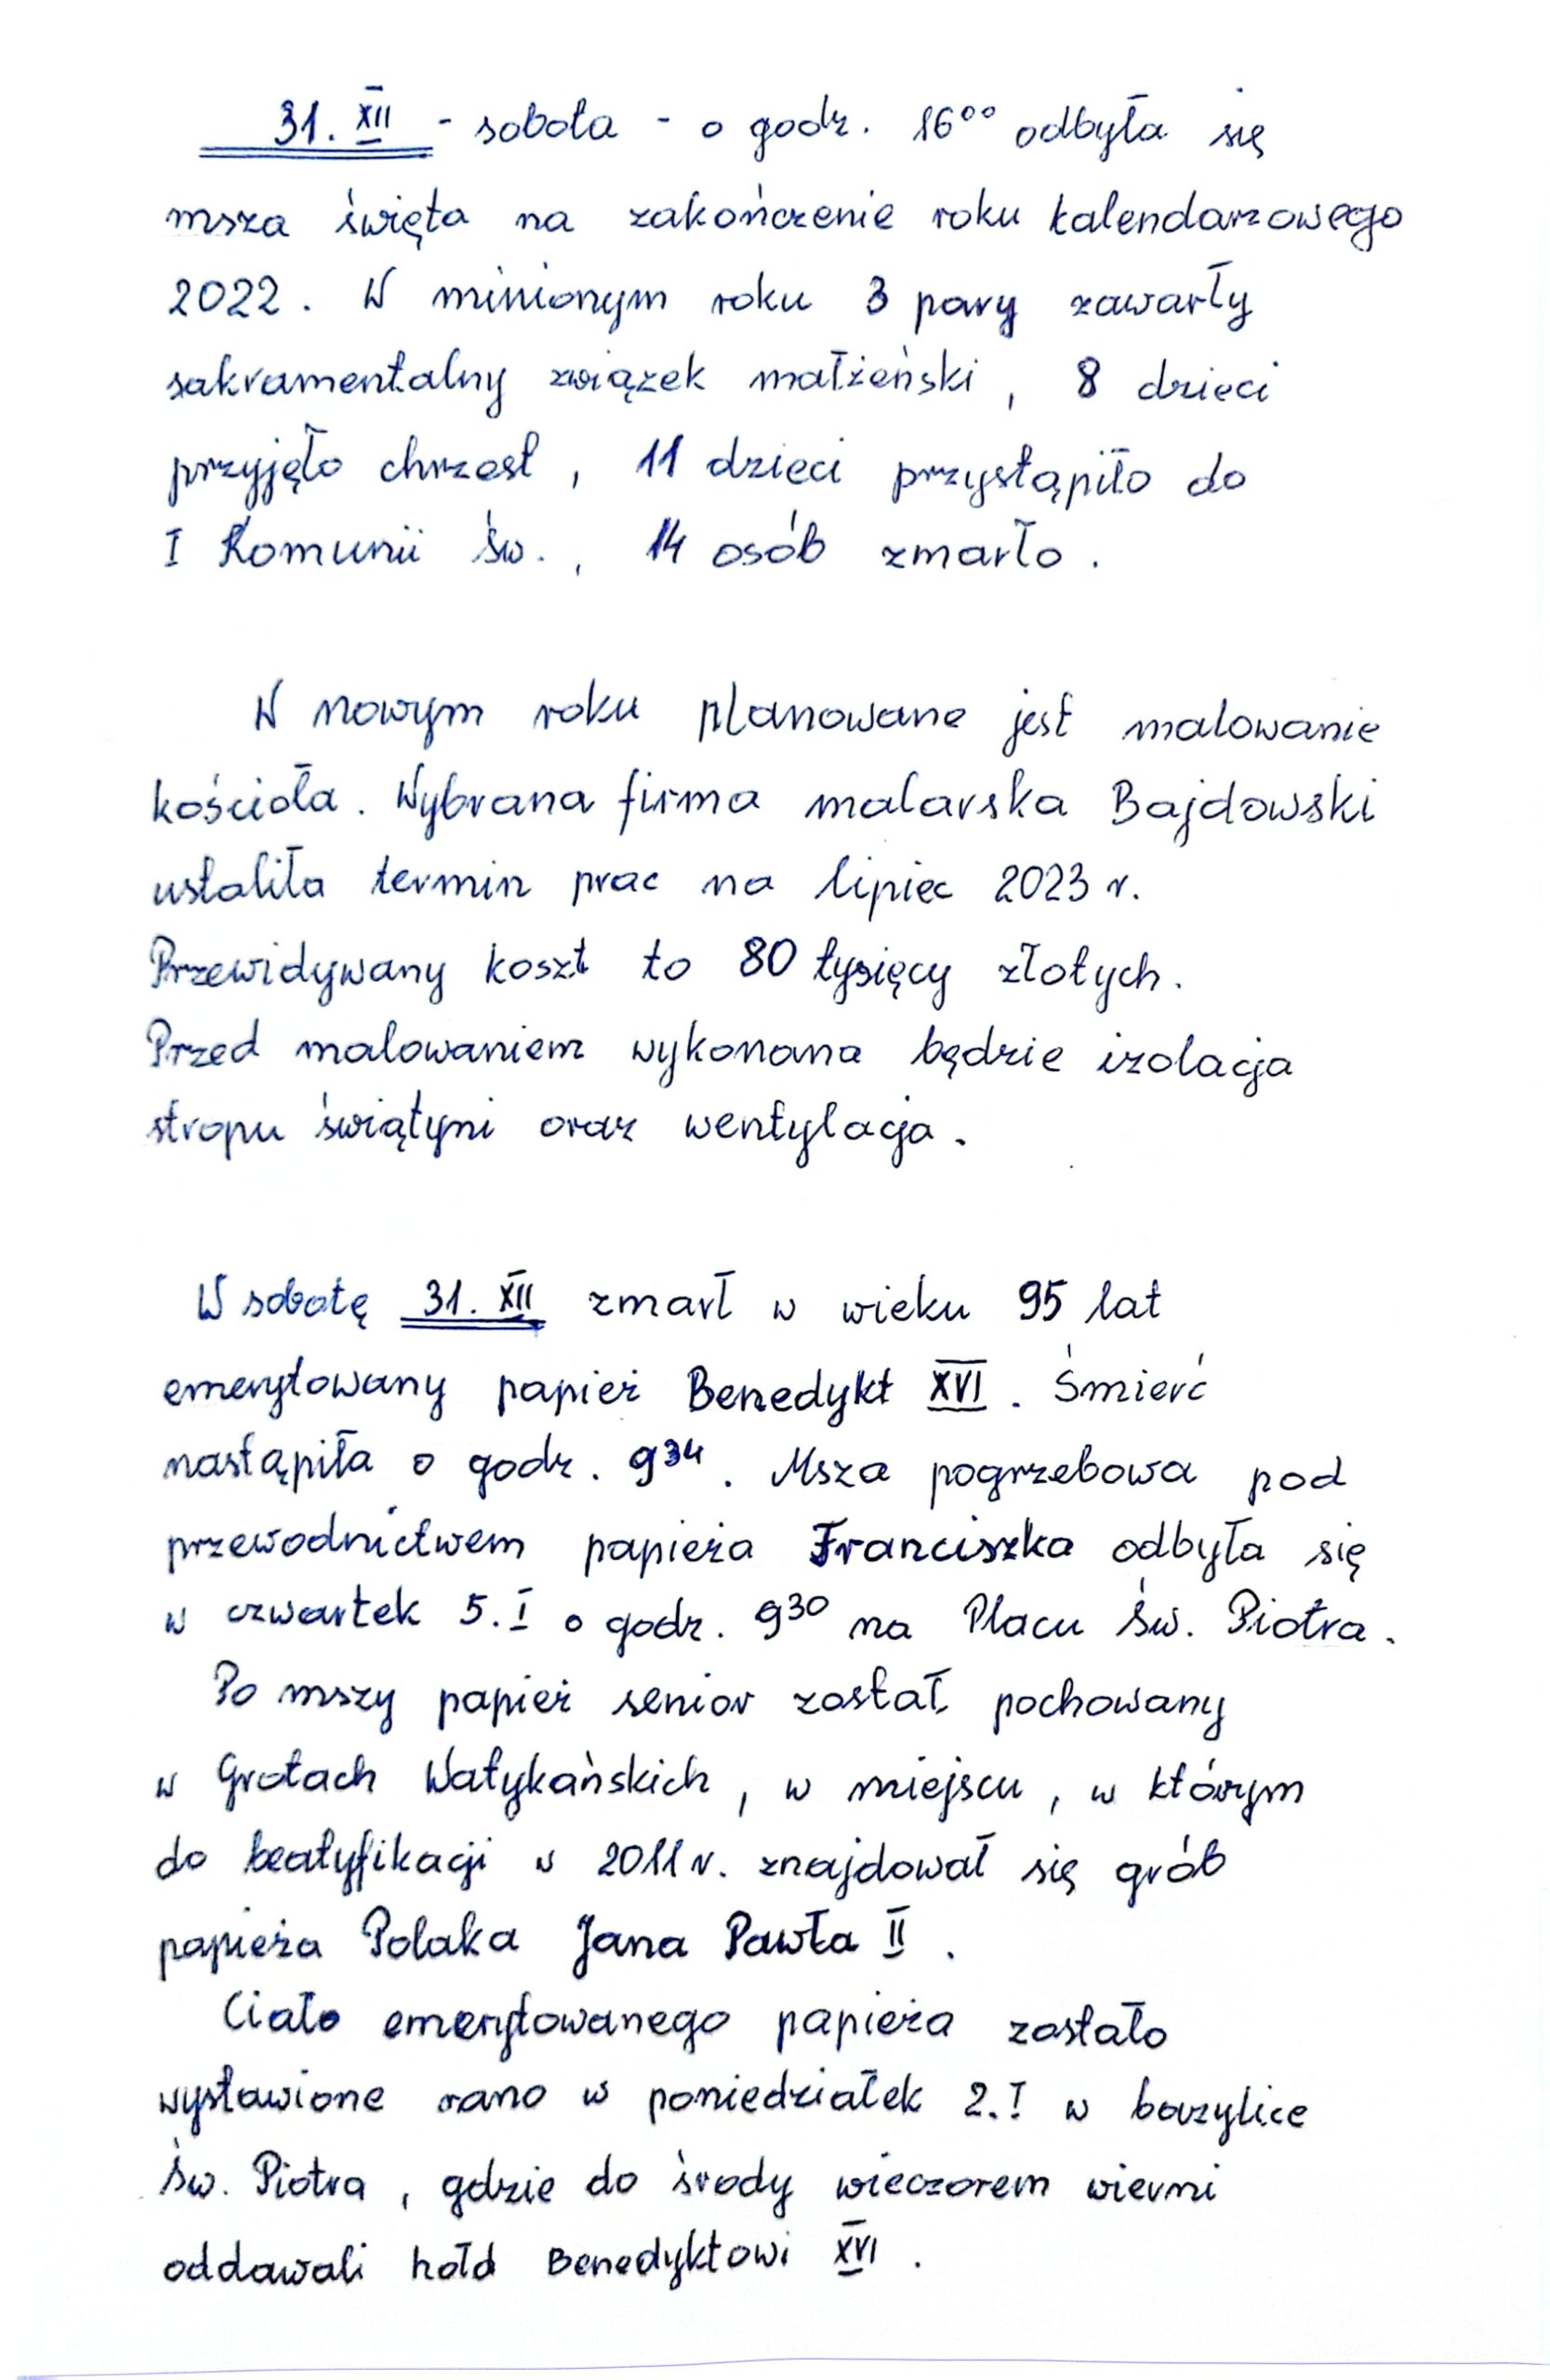 31. XII - sobota - o godz. 16⁰⁰ odbyła się
msza święta na zakończenie roku kalendarzowego
2022. W minionym roku 3 pary zawarły
sakramentalny związek małżeński, 8 dzieci
przyjęło chrzest, 11 dzieci przystąpiło do
I Komunii św., 14 osób zmarło.
W nowym roku planowane jest malowanie
kościoła. Wybrana firma malarska Bajdowski
ustaliła termin prac na lipiec 2023 r.
Przewidywany koszt to 80 tysięcy złotych.
Przed malowaniem wykonana będzie izolacja
stropu świątyni oraz wentylacja.
W sobotę 31. XII zmarł w wieku 95 lat
emerytowany papież Benedykt XVI. Śmierć
nastąpiła o godz. 9³⁴. Msza pogrzebowa pod
przewodnictwem papieża Franciszka odbyła się
w czwartek 5. I o godz. 9³⁰ na Placu św. Piotra.
Po mszy papież senior został pochowany
w Grotach Watykańskich, w miejscu, w którym
do beatyfikacji w 2011 r. znajdował się grób
papieża Polaka Jana Pawła II.
Ciało emerytowanego papieża zostało
wystawione rano w poniedziałek 2. I w bazylice
św. Piotra, gdzie do środy wieczorem wierni
oddawali hołd Benedyktowi XVI.